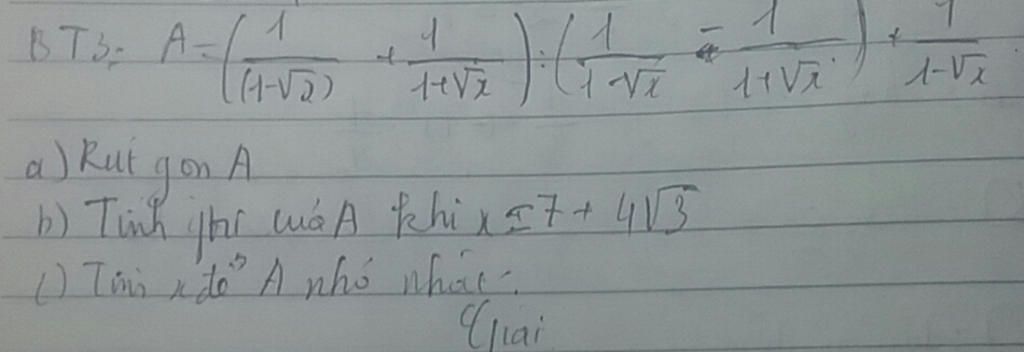 BT3: A = (1/(1-√x) + 1/(1+√x)) : (1/(1-√x) - 1/(1+√x)) + 1/(1-√x)
a) Rút gọn A
b) Tính gtrị của A khi x = 7 + 4√3
c) Tìm x để A nhỏ nhất.
Giải